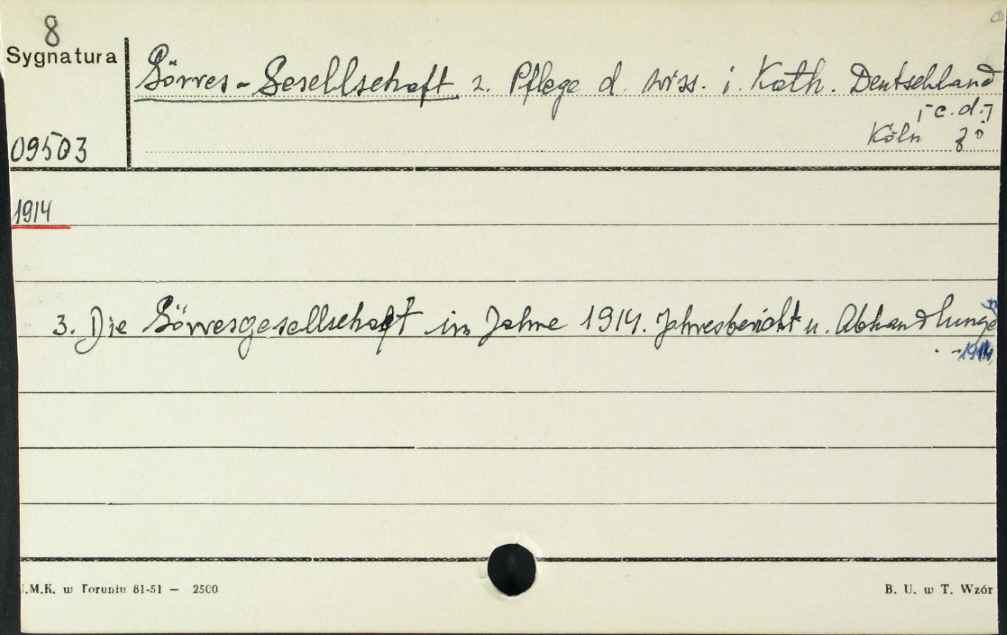 8
Sygnatura
Görres-Gesellschaft z. Pflege d. Wiss. i. Kath. Deutschland
[c.d.]
09503
Köln 8°
1914
3. Die Görresgesellschaft im Jahre 1914. Jahresbericht u. Abhandlunge
1914
.M.K. w Toruniu 81-51 — 2500
B. U. w T. Wzór